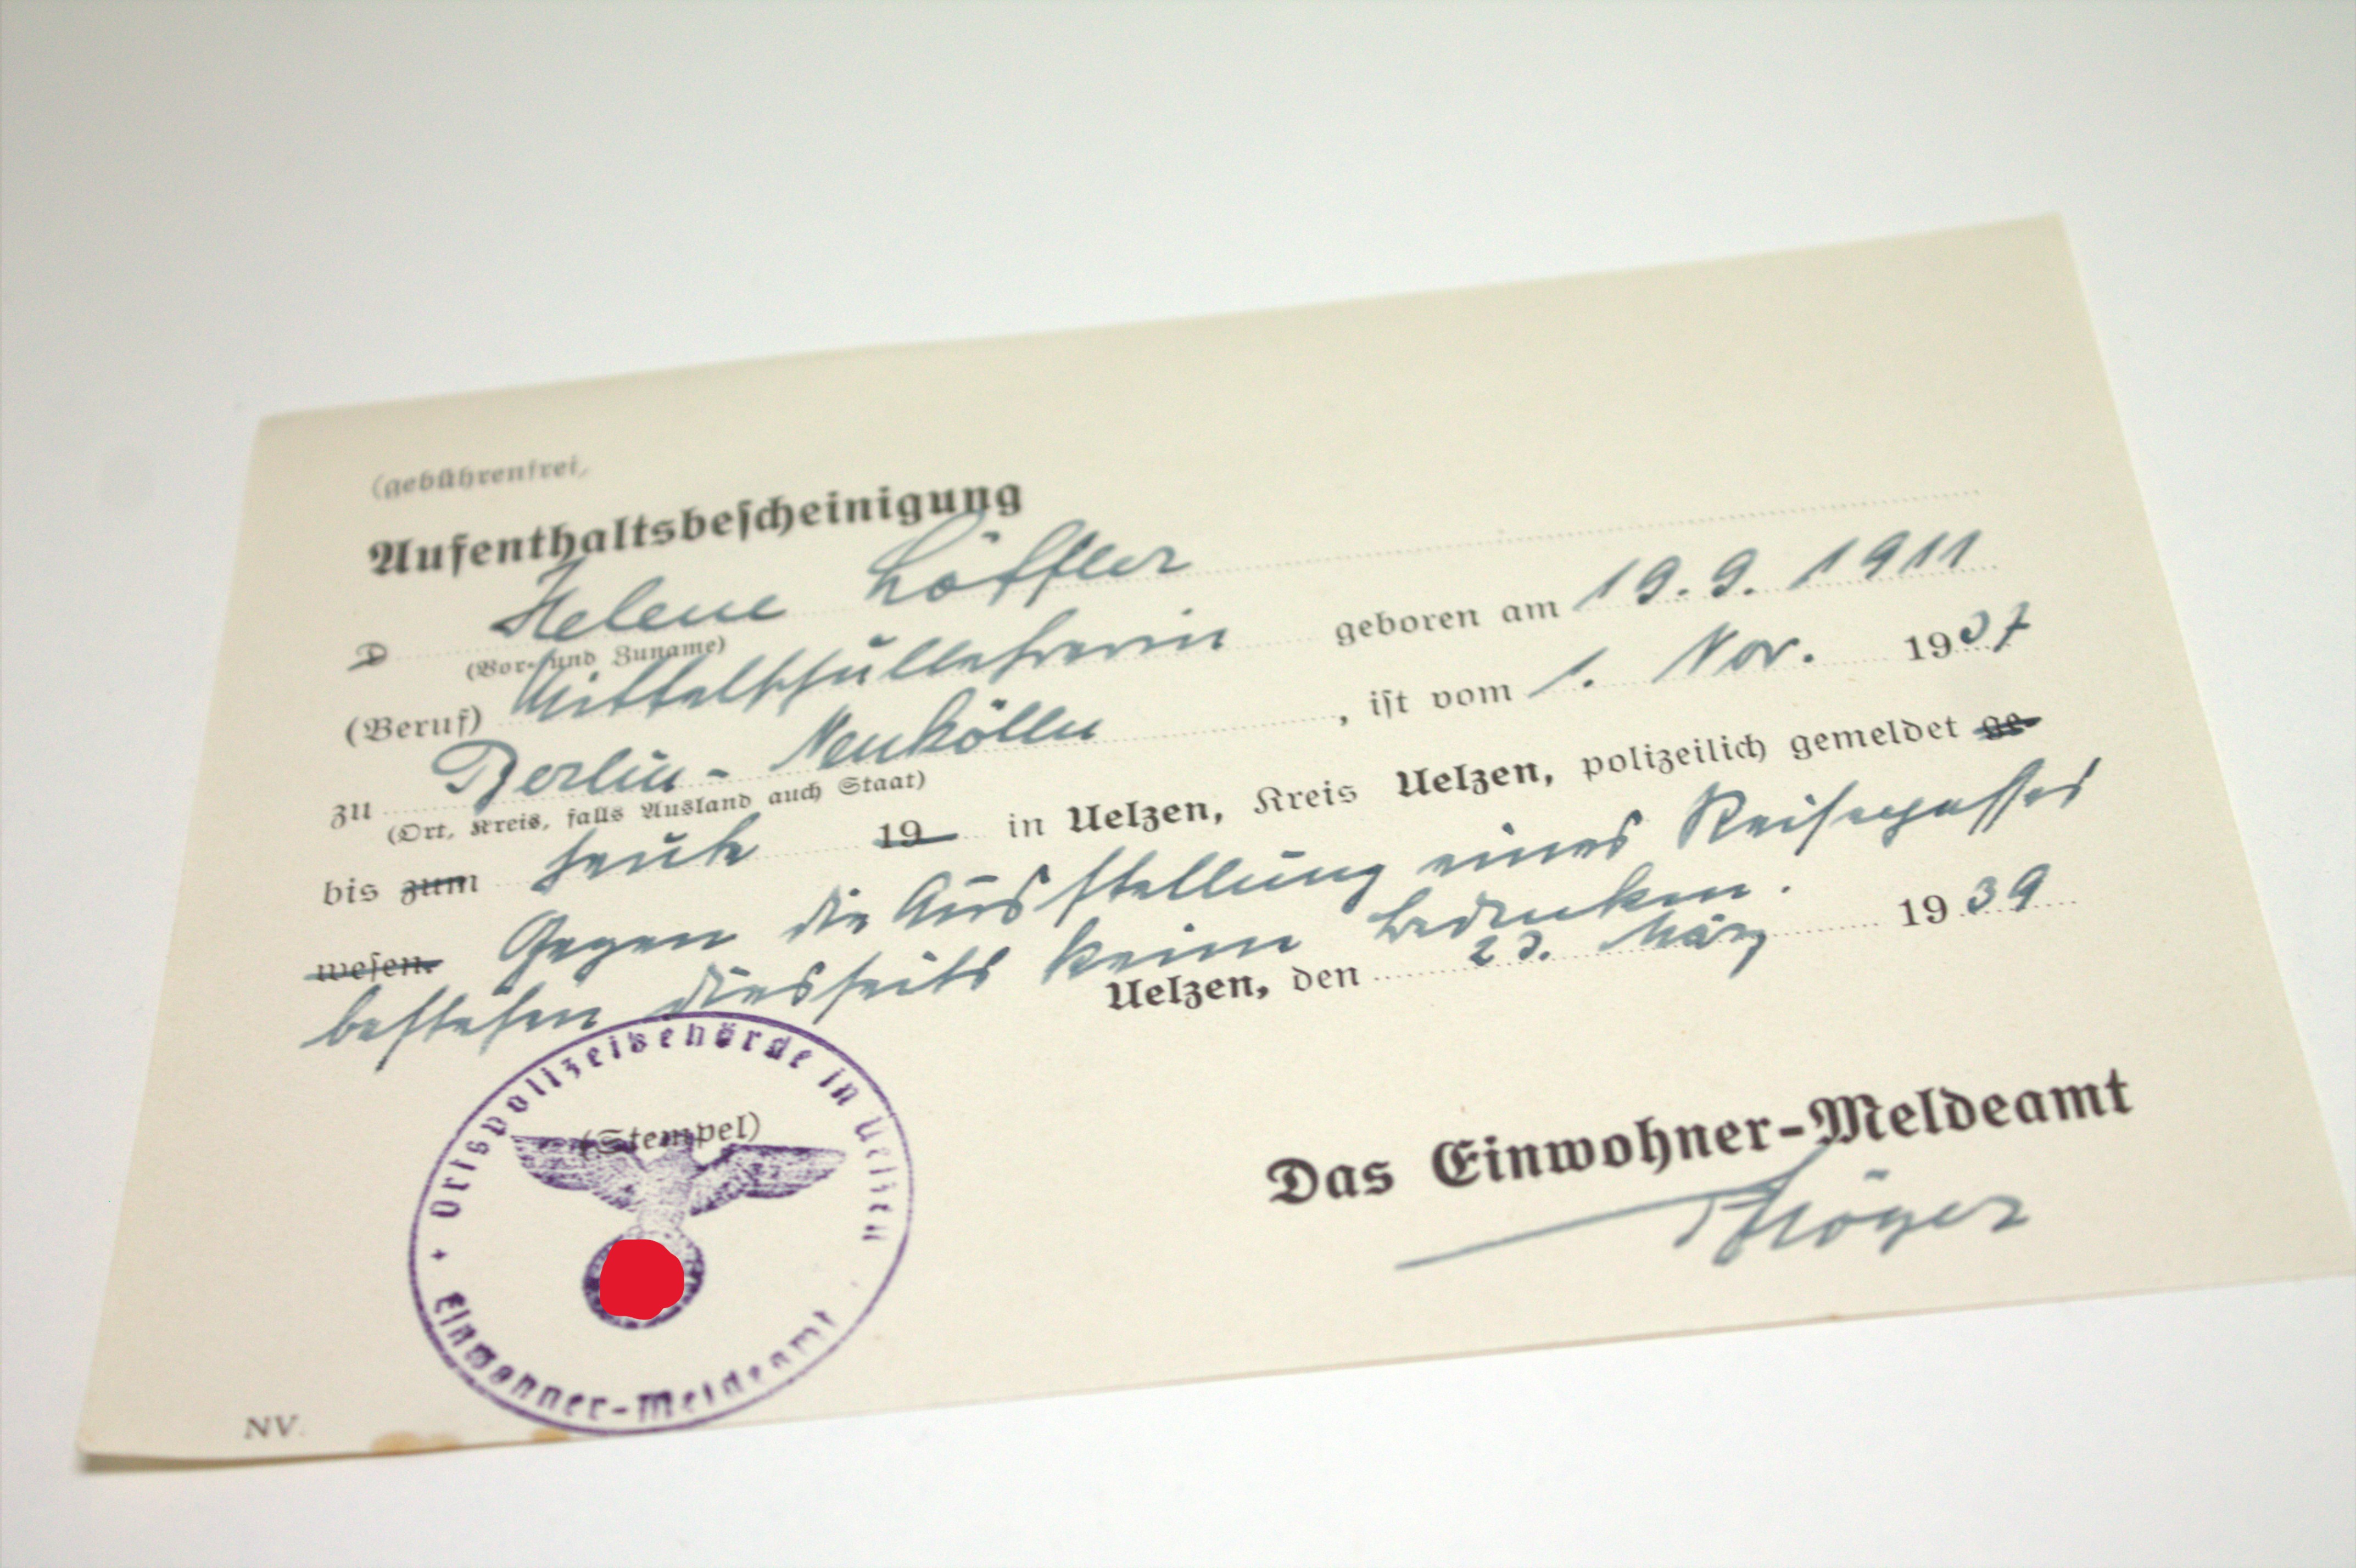 (gebührenfrei)
Aufenthaltsbescheinigung
D Helene Löffler
(Vor- und Zuname)
(Beruf) Mittelschullehrerin geboren am 19. 9. 1911
zu Berlin-Neukölln, ist vom 1. Nov. 1937
(Ort, Kreis, falls Ausland auch Staat)
bis zum heute 19 in Uelzen, Kreis Uelzen, polizeilich gemeldet ge-
wesen. Gegen die Ausstellung eines Reisepasses
bestehen diesseits keine Bedenken.
Uelzen, den 23. März 1939
(Stempel)
Ortspolizeibehörde in Uelzen
Einwohner-Meldeamt
Das Einwohner-Meldeamt
NV.